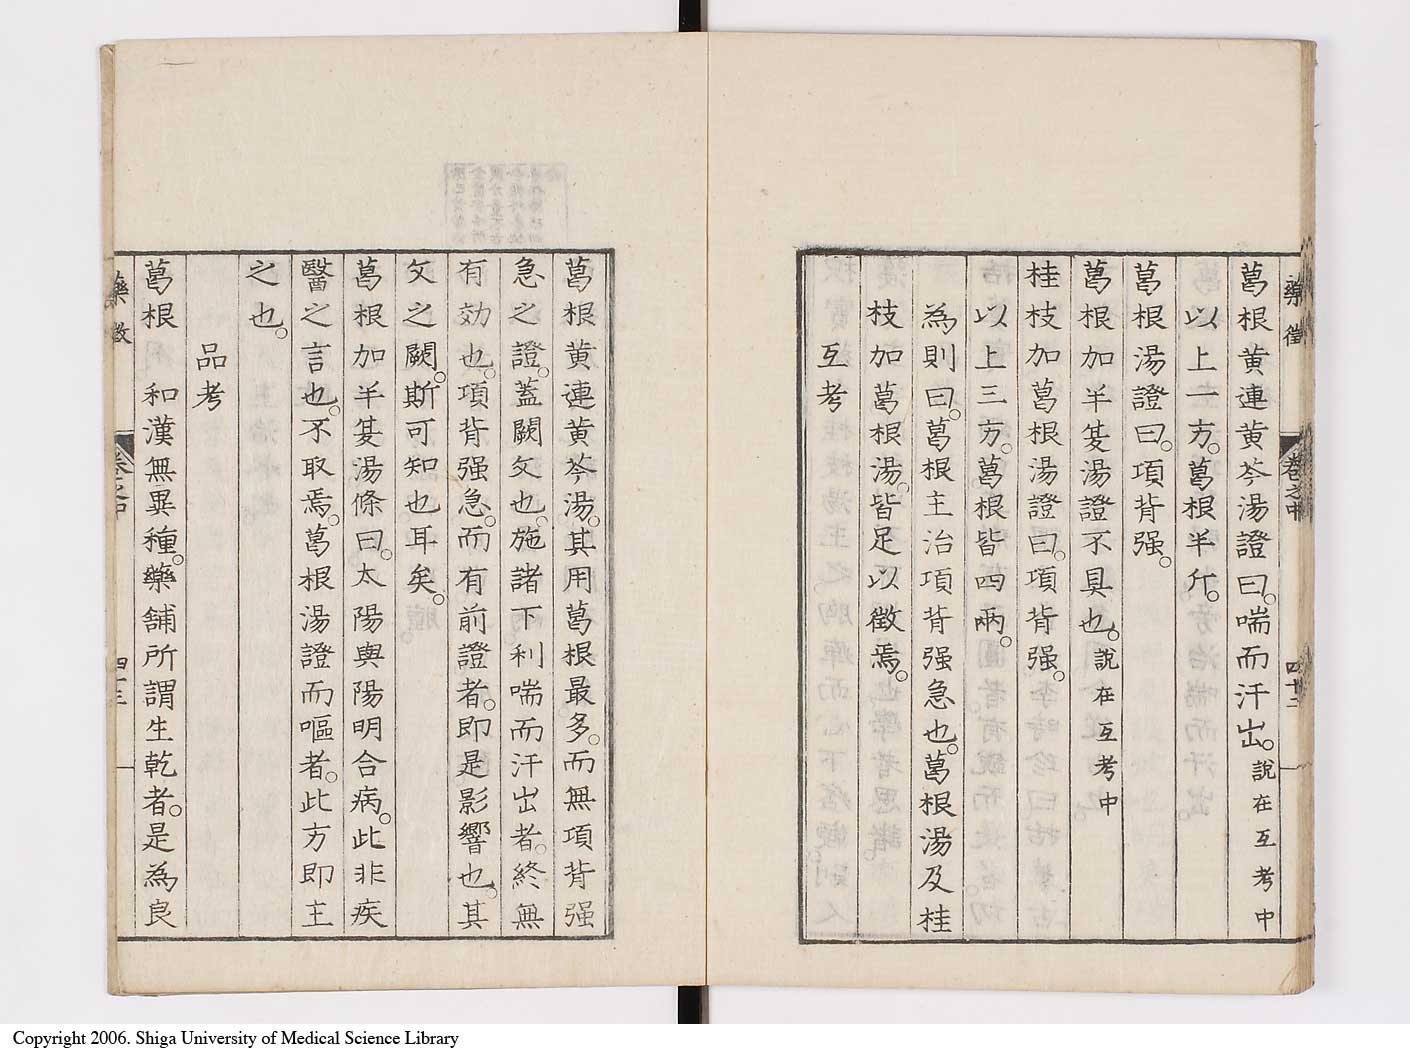 藥徵 卷之中 四十二
葛根黃連黃芩湯證曰。喘而汗出。說在互考中
以上一方。葛根半斤。
葛根湯證曰。項背强。
葛根加半夏湯證不具也。說在互考中
桂枝加葛根湯證曰。項背强。
以上三方。葛根皆四兩。
為則曰。葛根主治項背强急也。葛根湯及桂
枝加葛根湯。皆足以徵焉。
互考
葛根黃連黃芩湯。其用葛根最多。而無項背强
急之證。蓋闕文也。施諸下利喘而汗出者。終無
有効也。項背强急。而有前證者。即是影響也。其
文之闕。斯可知也耳矣。
葛根加半夏湯條曰。太陽與陽明合病。此非疾
醫之言也。不取焉。葛根湯證而嘔者。此方即主
之也。
品考
葛根 和漢無異種。藥舖所謂生乾者。是為良
藥徵 卷之中 四十三
Copyright 2006. Shiga University of Medical Science Library